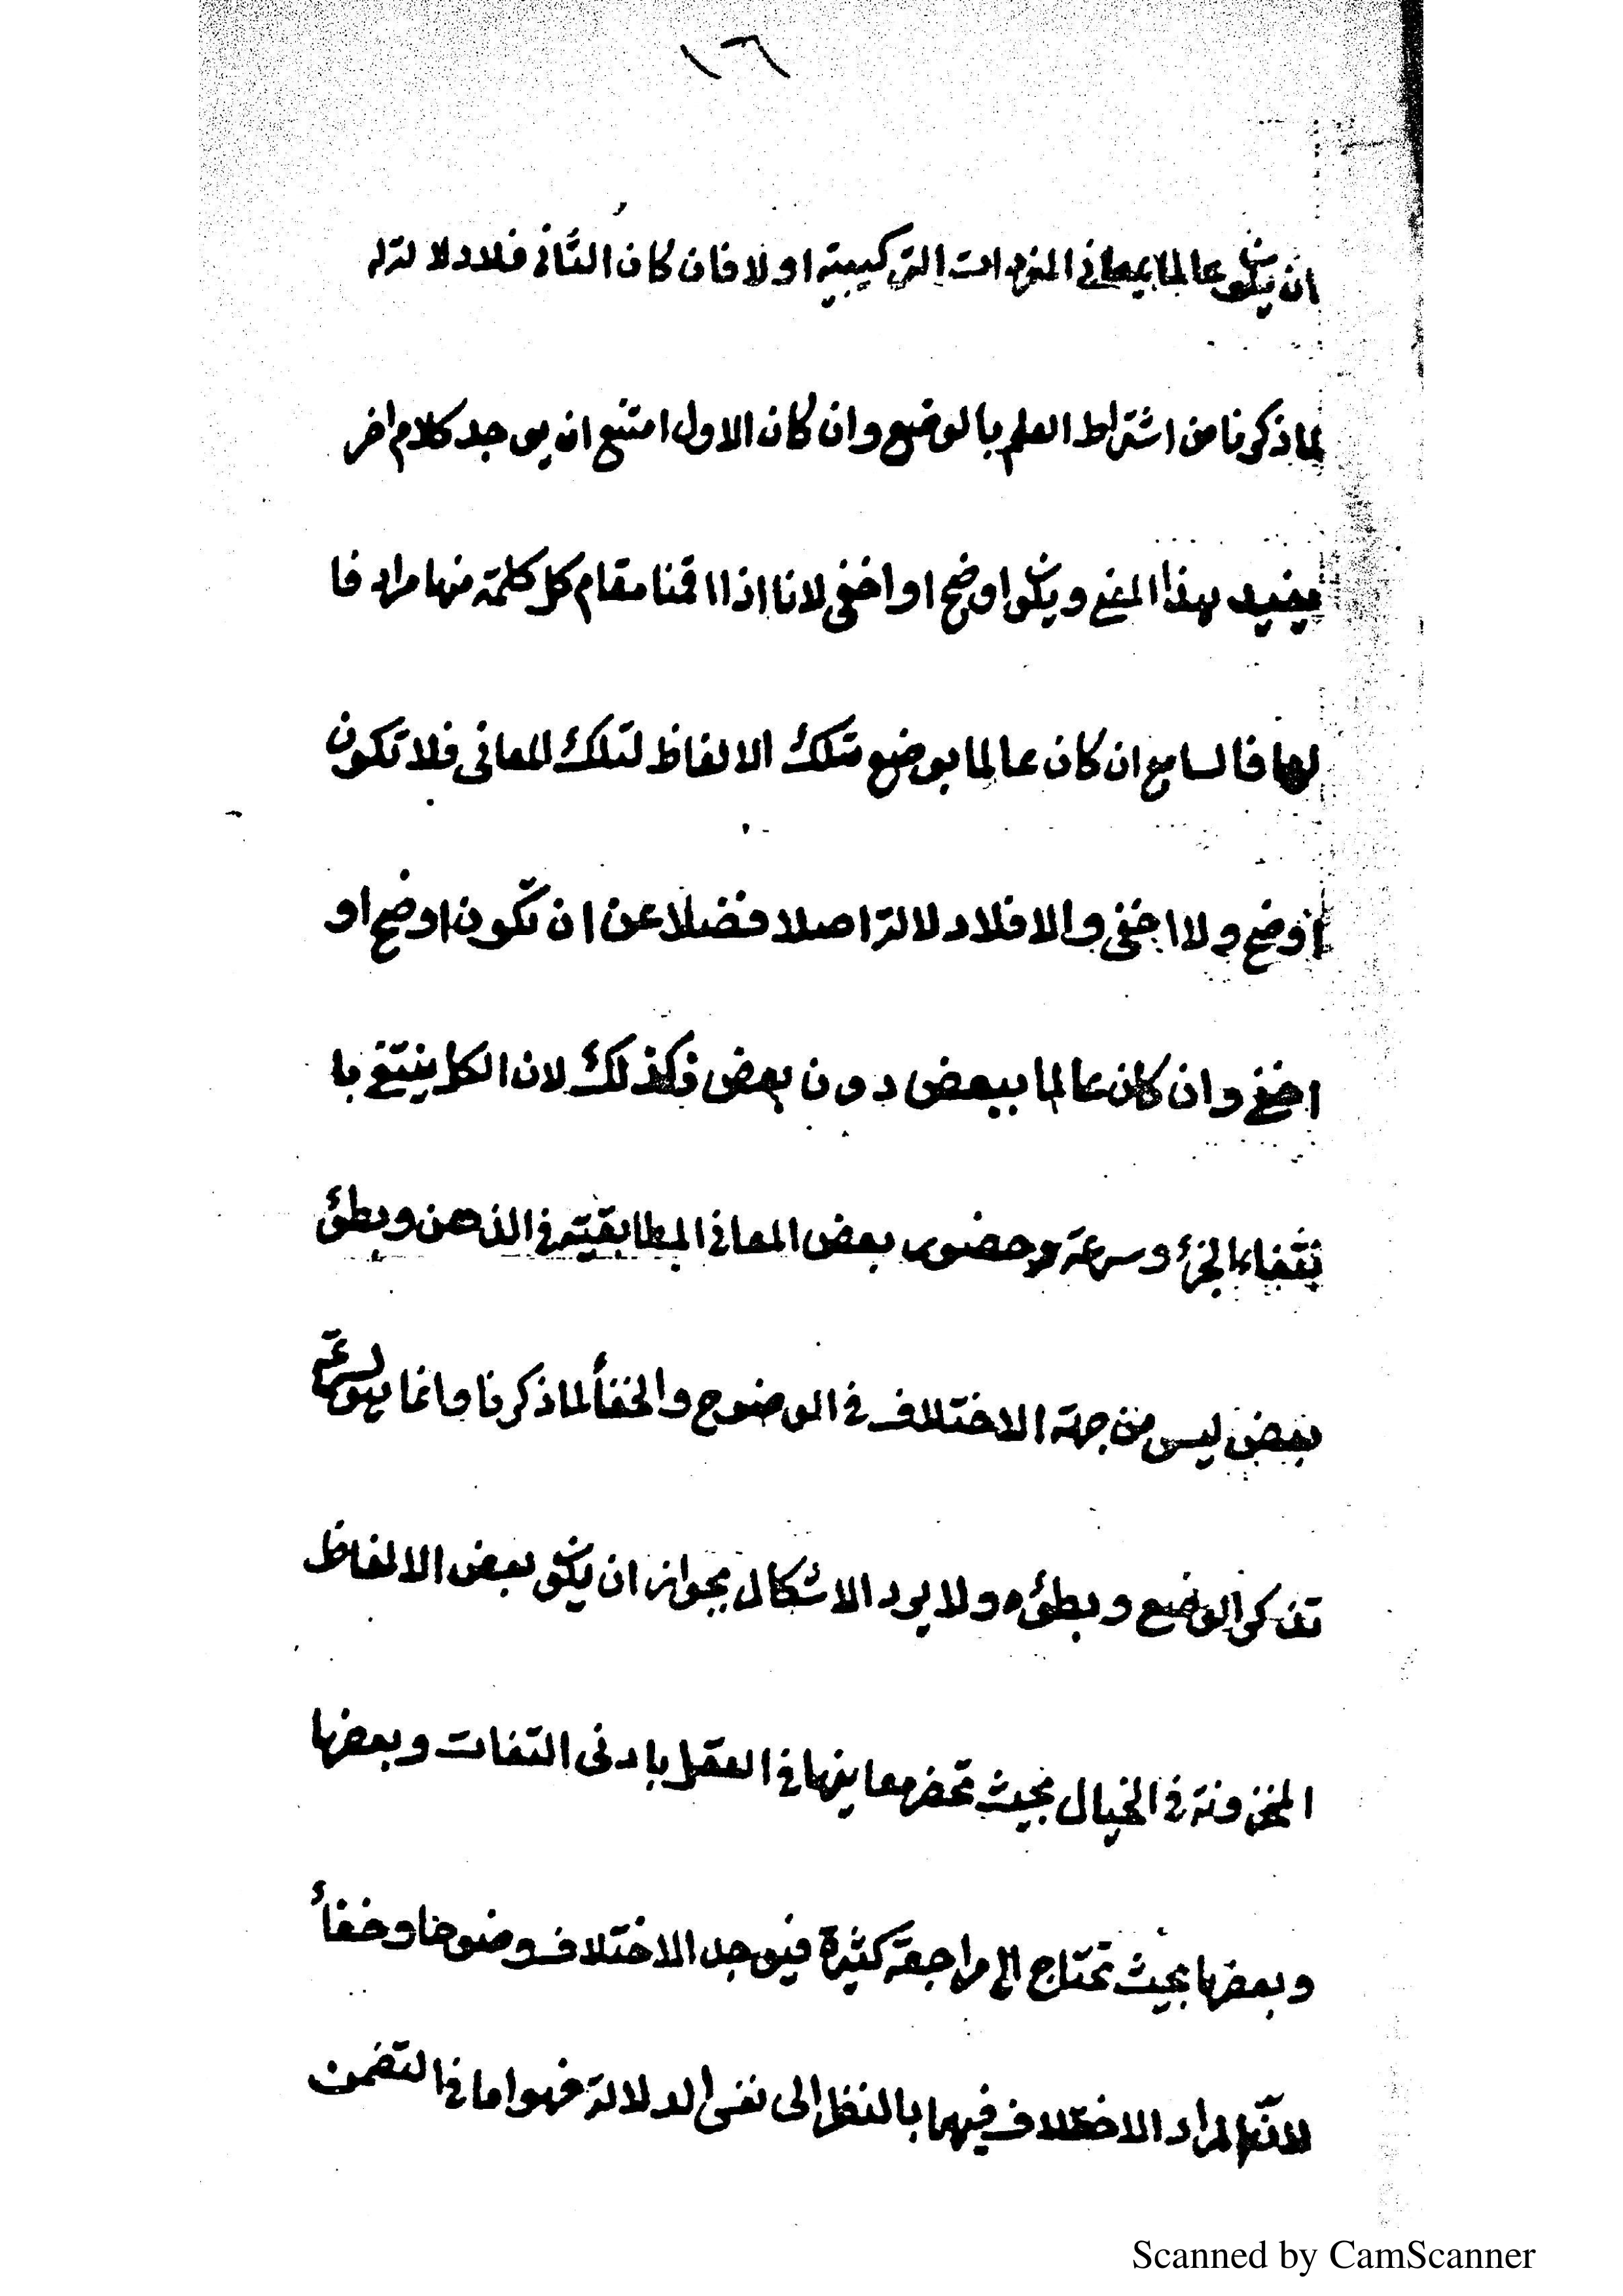 ١٦
ان يكون عالما بمعاني المفردات التركيبية او لا فان كان الثاني فلا دلالة له
لما ذكرنا من اشتراط العلم بالوضع وان كان الاول امتنع ان يوجد كلام اخر
يفيد بهذا المعنى ويكون اوضح او اخفى لانا اذا اقمنا مقام كل كلمة منها مرادفا
لها فالسامع ان كان عالما بوضع تلك الالفاظ لتلك المعانى فلا تكون
اوضح ولا اخفى والا فلا دلالة اصلا فضلا عن ان تكون اوضح او
اخفى وان كان عالما ببعض دون بعض فكذلك لان الكل ينتفى با
نتفاء الجزء وسرعة وحضور بعض المعاني المطابقية في الذهن وبطئ
بعض ليس من جهة الاختلاف في الوضوح والخفأ لما ذكرنا وانما هو لسرعة
تذكر الوضع وبطئه ولا يرد الاشكال بجواز ان يكون بعض الالفاظ
المخزونة في الخيال بحيث تحضر معاينها في العقل بادنى التفات وبعضها
وبعضها بحيث تحتاج الى مراجعة كثيرة فيوجد الاختلاف وضوحا وخفأ
لان المراد الاختلاف فيهما بالنظر الى نفس الدلالة فهو اما في التضمن
Scanned by CamScanner